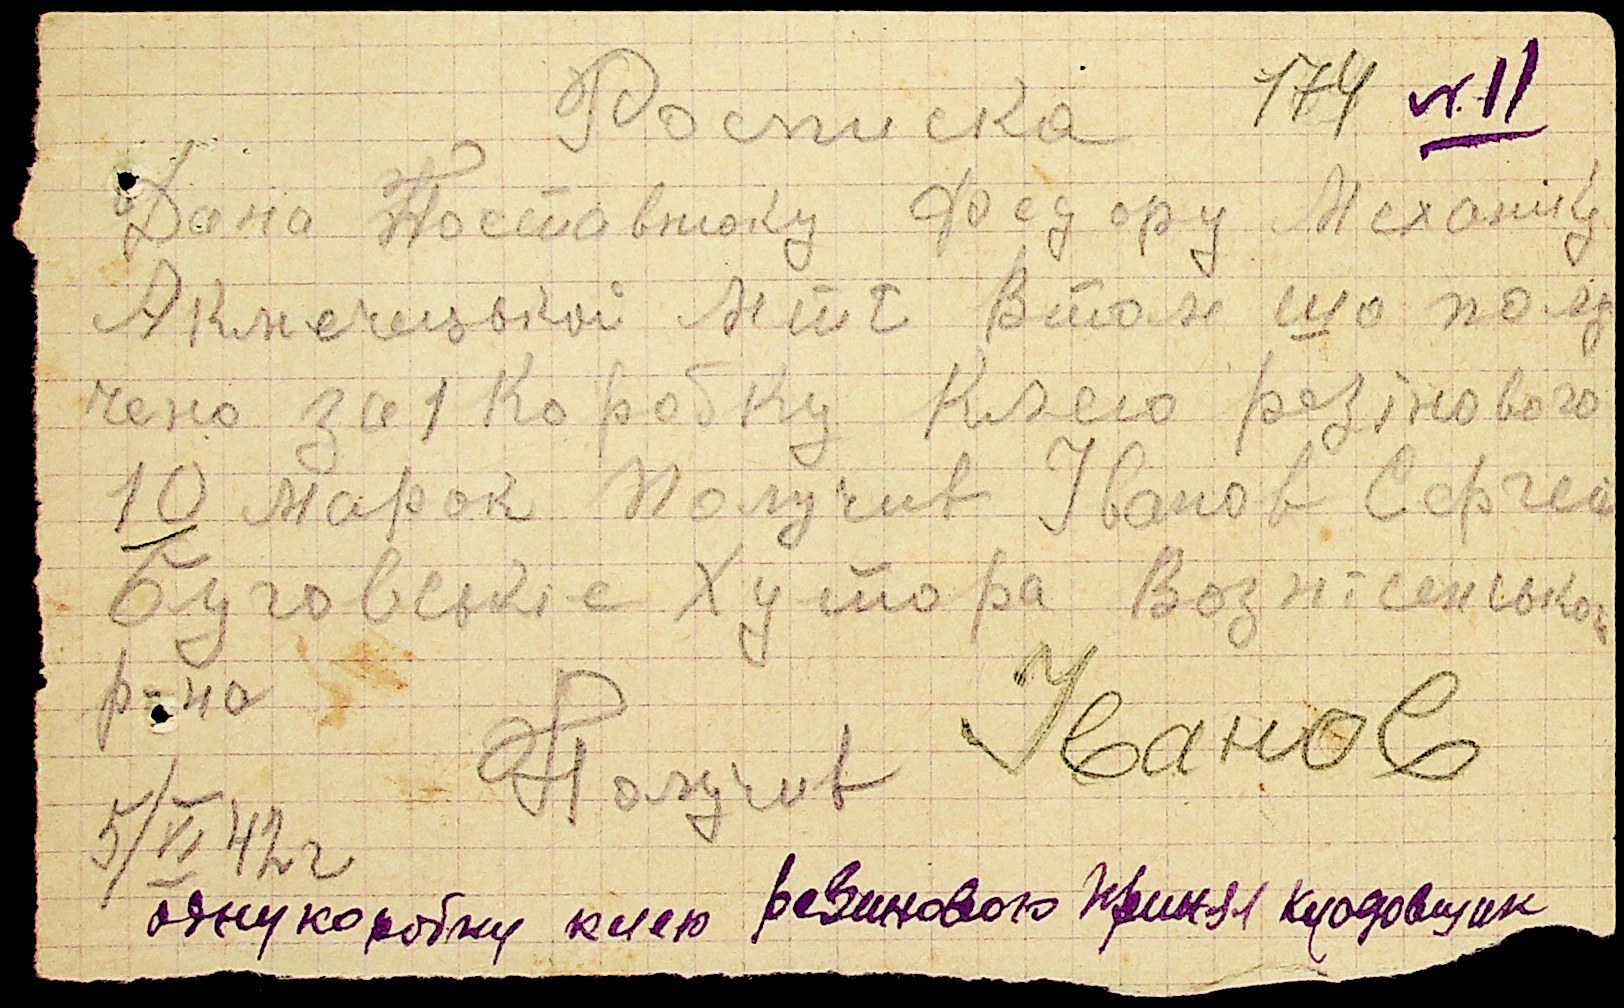 Росписка 174 №11
Дана Поставнюку Федору Механику
Акмечецькой МТС Втом що полу
чено за 1 Коробку Клею резінового
10 марок Получив Іванов Сергей
Буговськіе Хутора Вознісенського
р-на
Получив Іванов
5/VI 42 г
одну коробку клею резинового принял кладовщик